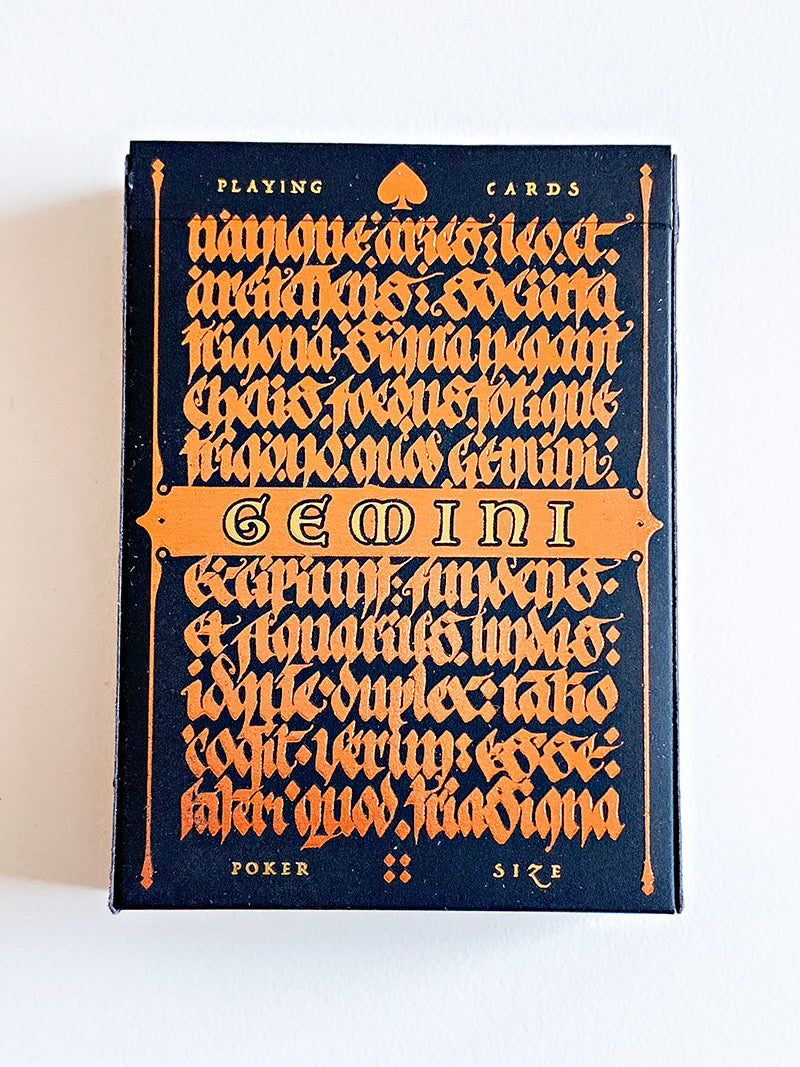 PLAYING CARDS
namque:aries:leo.et.
arcitenens: sociata
trigona signa negant
chelis.foedus.totique
trigono:quos Gemini:
GEMINI
Excipiunt: fundens.
et Aquarius.undas:
idque·duplex:ratio
cogit·verum:esse:
fateri quod.tria Signa
POKER SIZE